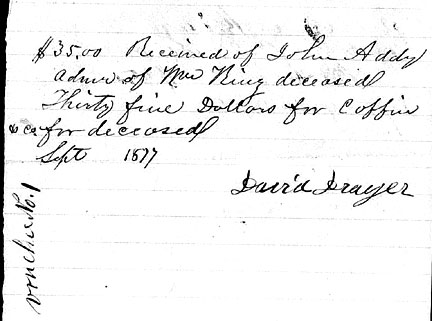 $35.00 Received of John Addy
admr of Wm King deceased
Thirty five Dollars for Coffin
&ca for deceased
Sept 1877
David Drayer
Voucher No. 1